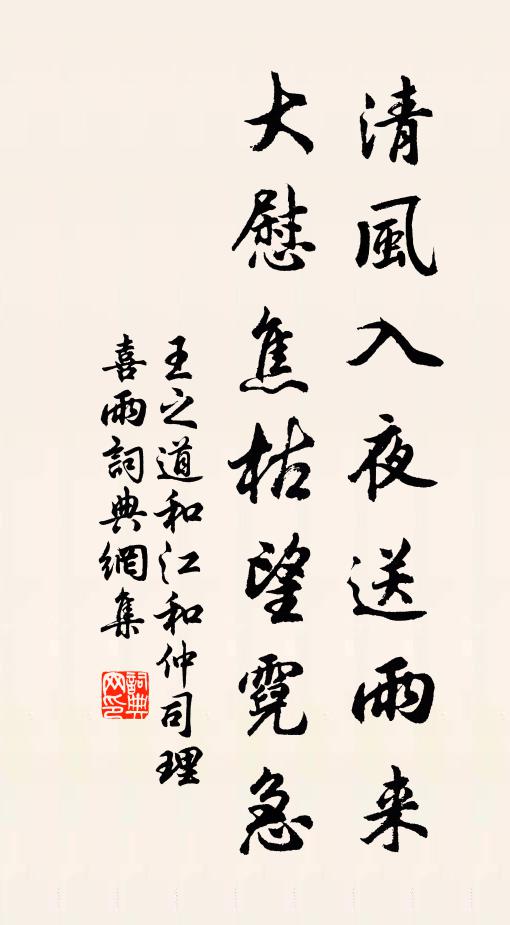 清風入夜送雨来
大慰焦枯望霓急
王之道和江和仲司理
喜雨詞典網集
詞典
网印